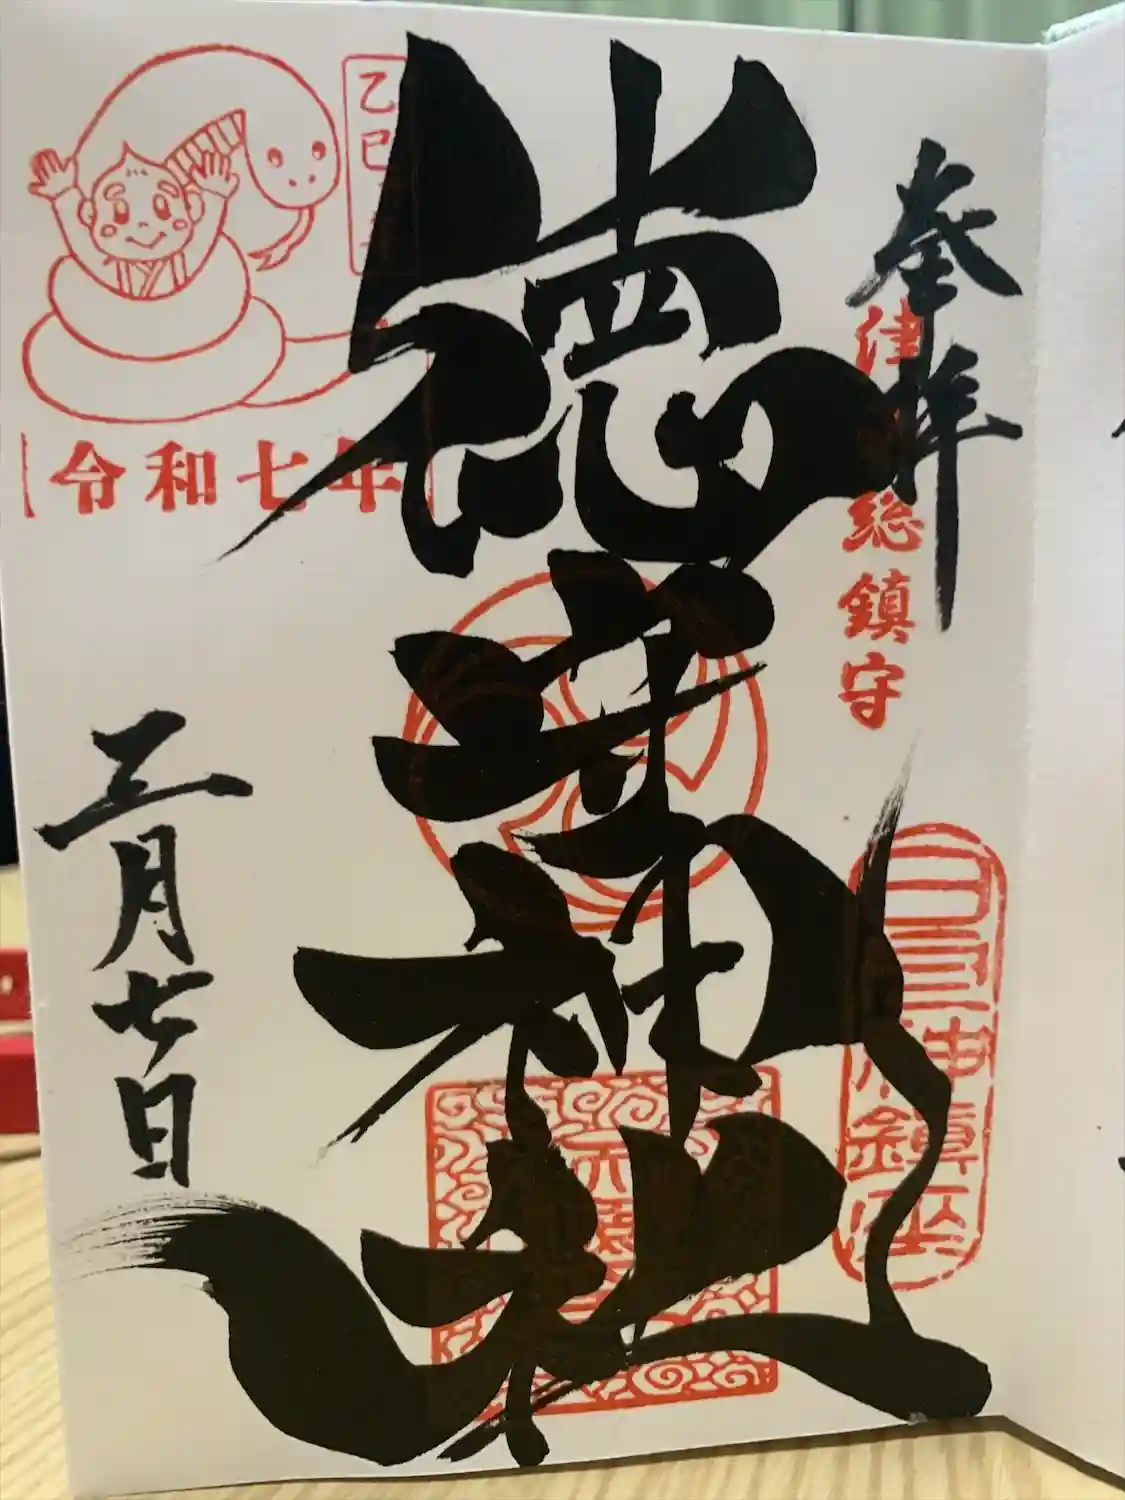 奉拝
津
総鎮守
徳守神社
乙巳
令和七年
三月七日